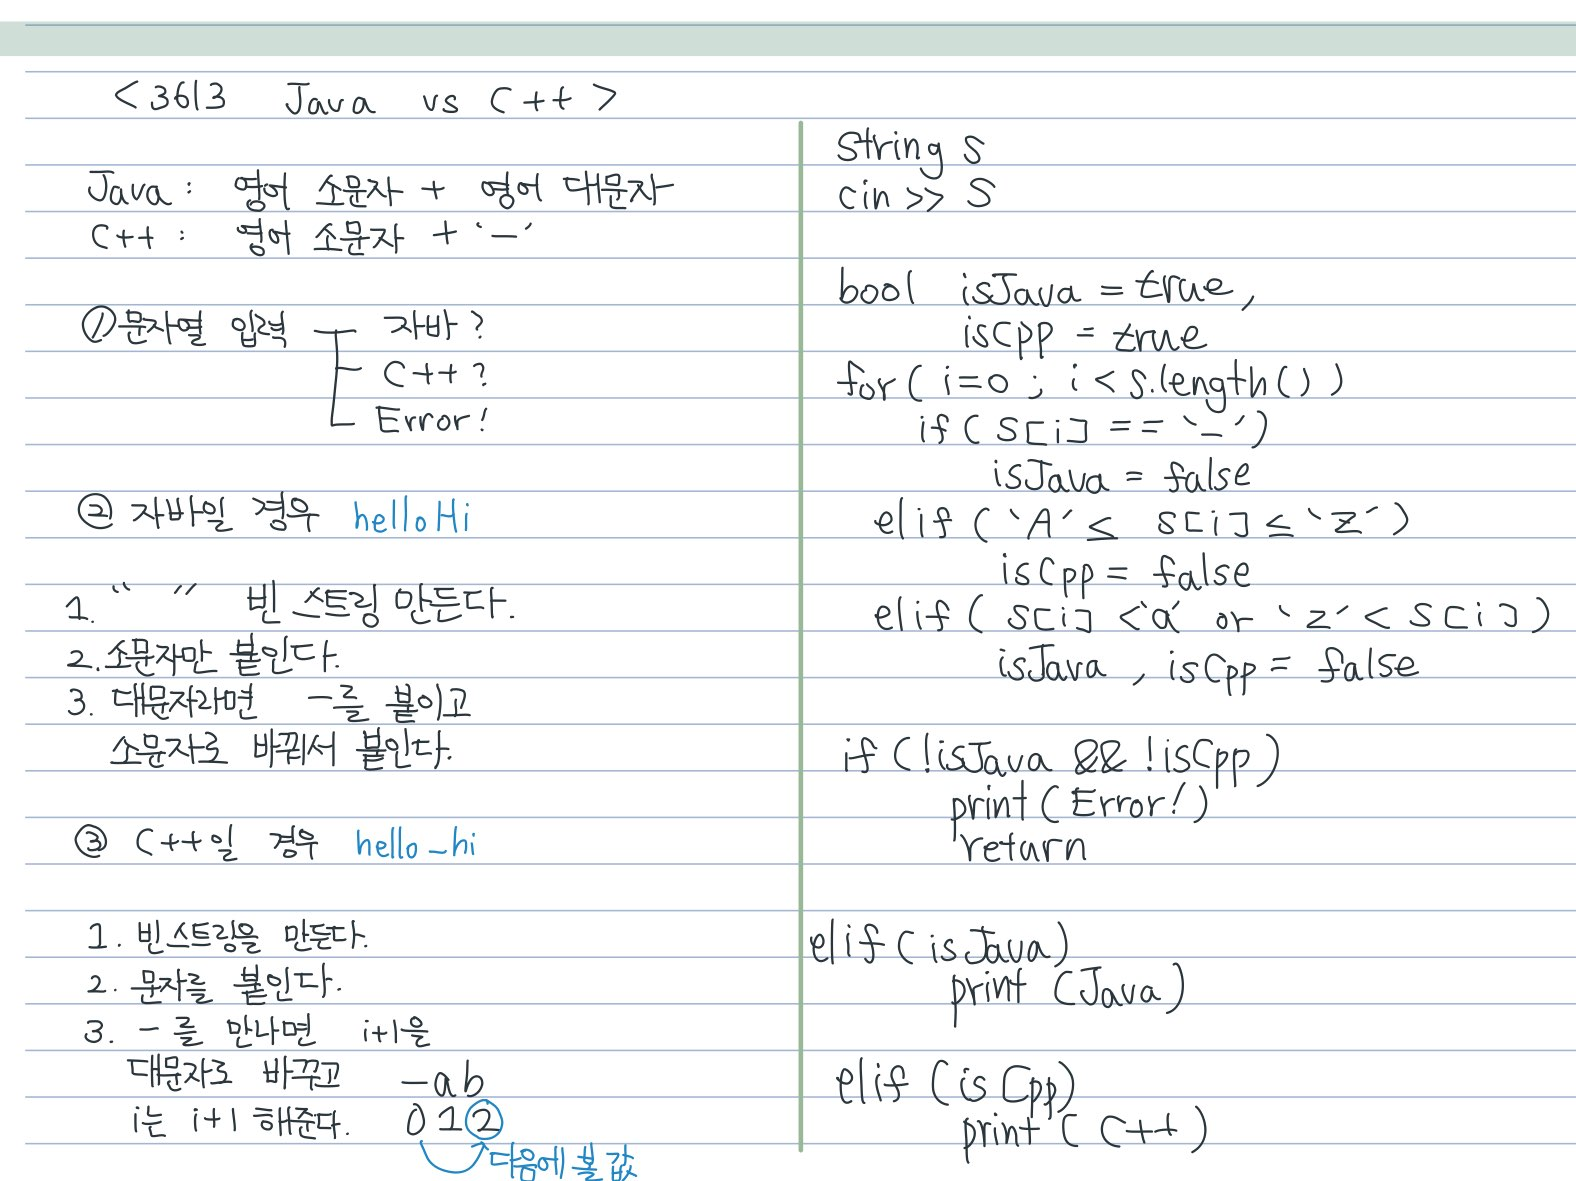 <3613 Java vs C++>
Java : 영어 소문자 + 영어 대문자
C++ : 영어 소문자 + '_'
① 문자열 입력 자바?
C++?
Error!
② 자바일 경우 helloHi
1. " " 빈 스트링 만든다.
2. 소문자만 붙인다.
3. 대문자라면 _를 붙이고
소문자로 바꿔서 붙인다.
③ C++일 경우 hello_hi
1. 빈스트링을 만든다.
2. 문자를 붙인다.
3. _를 만나면 i+1을
대문자로 바꾸고 _ab
i는 i+1 해준다. 012
다음에 볼 값
string s
cin >> S
bool isJava = true,
isCpp = true
for( i=0 ; i < s.length() )
if( S[i] == '_')
isJava = false
elif ('A' ≤ s[i] ≤ 'Z')
isCpp = false
elif( s[i] <'a' or 'z' < S[i] )
isJava , isCpp = false
if (!isJava && !isCpp)
print(Error!)
return
elif(isJava)
print (Java)
elif (isCpp)
print( C++ )